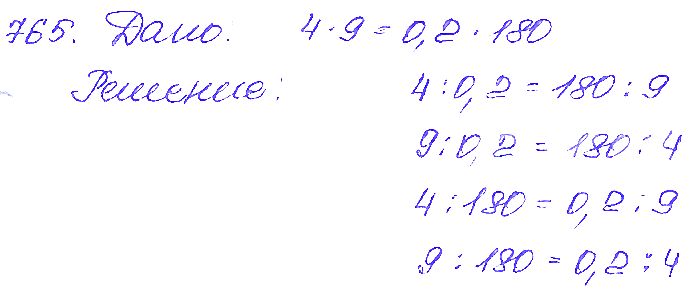 765. Дано: 4 · 9 = 0,2 · 180
Решение: 4 : 0,2 = 180 : 9
9 : 0,2 = 180 : 4
4 : 180 = 0,2 : 9
9 : 180 = 0,2 : 4